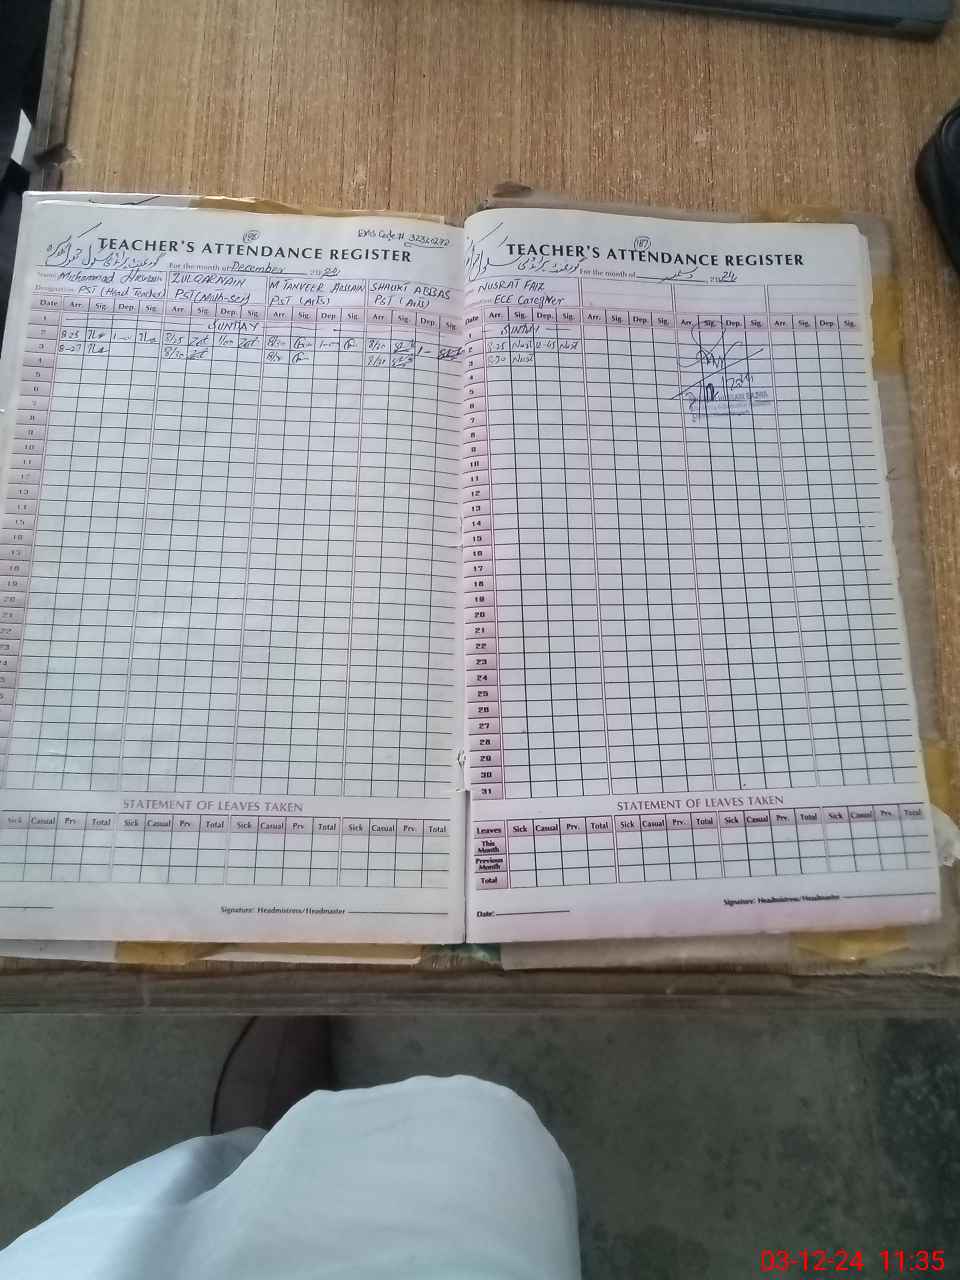 186
EMIS Code #
TEACHER'S ATTENDANCE REGISTER
For the month of December 2024
Name Muhammad Hussain ZULQARNAIN M TANVEER HASSAIN SHAUKI ABBAS
Designation PST (Head Teacher) PST PST (Arts) PST (Arts)
Date Arr. Sig. Dep. Sig. Arr. Sig. Dep. Sig. Arr. Sig. Dep. Sig. Arr. Sig. Dep. Sig.
1 SUNDAY
2 8-25 8/25 8/20 8/20
3 8-27 8/20 8/20 8/20
4
5
6
7
8
9
10
11
12
13
14
15
16
17
18
19
20
21
22
23
24
25
26
STATEMENT OF LEAVES TAKEN
Sick Casual Prv. Total Sick Casual Prv. Total Sick Casual Prv. Total Sick Casual Prv. Total
Signature: Headmistress/Headmaster
187
TEACHER'S ATTENDANCE REGISTER
For the month of دسمبر 2024
NUSRAT FAIZ
ECE Caregiver
Date Arr. Sig. Dep. Sig. Arr. Sig. Dep. Sig. Arr. Sig. Dep. Sig. Arr. Sig. Dep. Sig.
1 SUNDAY
2 8-25 Nust 12-45 Nust
3 8-30 Nust
4
5
6
7
8
9
10
11
12
13
14
15
16
17
18
19
20
21
22
23
24
25
26
27
28
29
30
31
STATEMENT OF LEAVES TAKEN
Leaves Sick Casual Prv. Total Sick Casual Prv. Total Sick Casual Prv. Total Sick Casual Prv. Total
This Month
Previous Month
Total
Signature: Headmistress/Headmaster
Date:
03-12-24 11:35